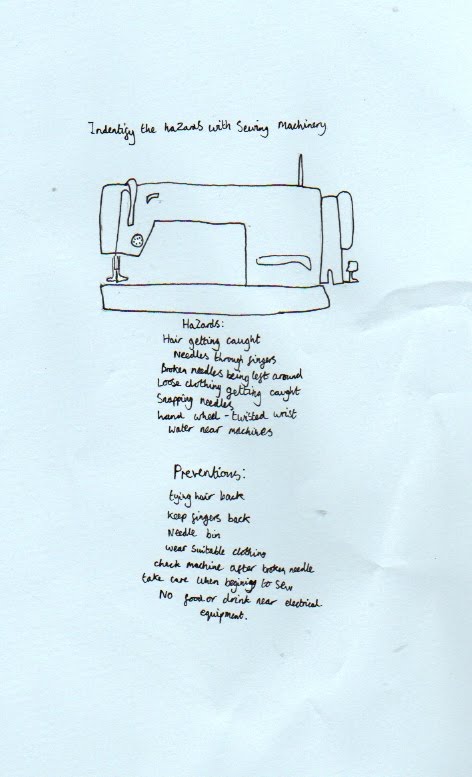 Indentify the hazards with Sewing Machinery
Hazards:
Hair getting caught
Needles through fingers
Broken needles being left around
Loose clothing getting caught
Snapping needles
hand wheel - twisted wrist
water near machines
Preventions:
tying hair back
keep fingers back
Needle bin
wear suitable clothing
check machine after broken needle
take care when begining to sew
No food or drink near electrical
equipment.